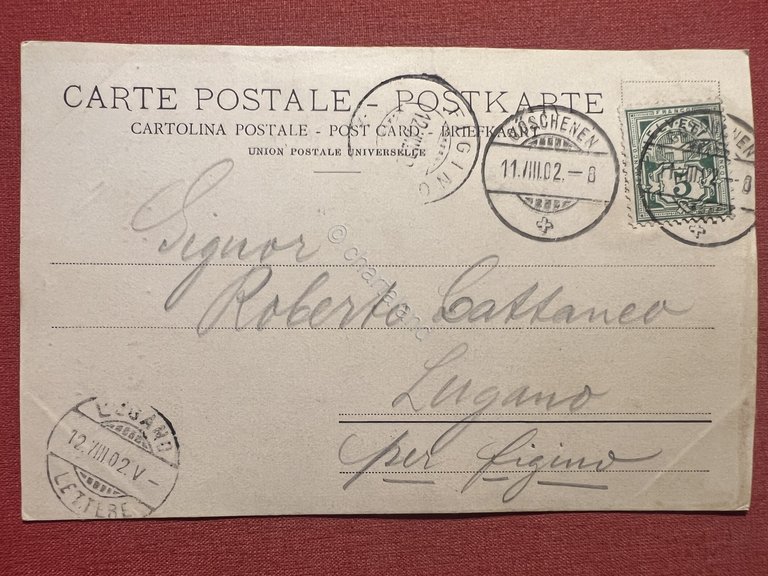 CARTE POSTALE - POSTKARTE
CARTOLINA POSTALE - POST CARD - BRIEFKAART
UNION POSTALE UNIVERSELLE
FIGINO
GÖSCHENEN
11.VIII.02.-8
FRANCO
5
Signor
Roberto Cattaneo
Lugano
per Figino
LUGANO
12.VIII.02.V-
LETTERE